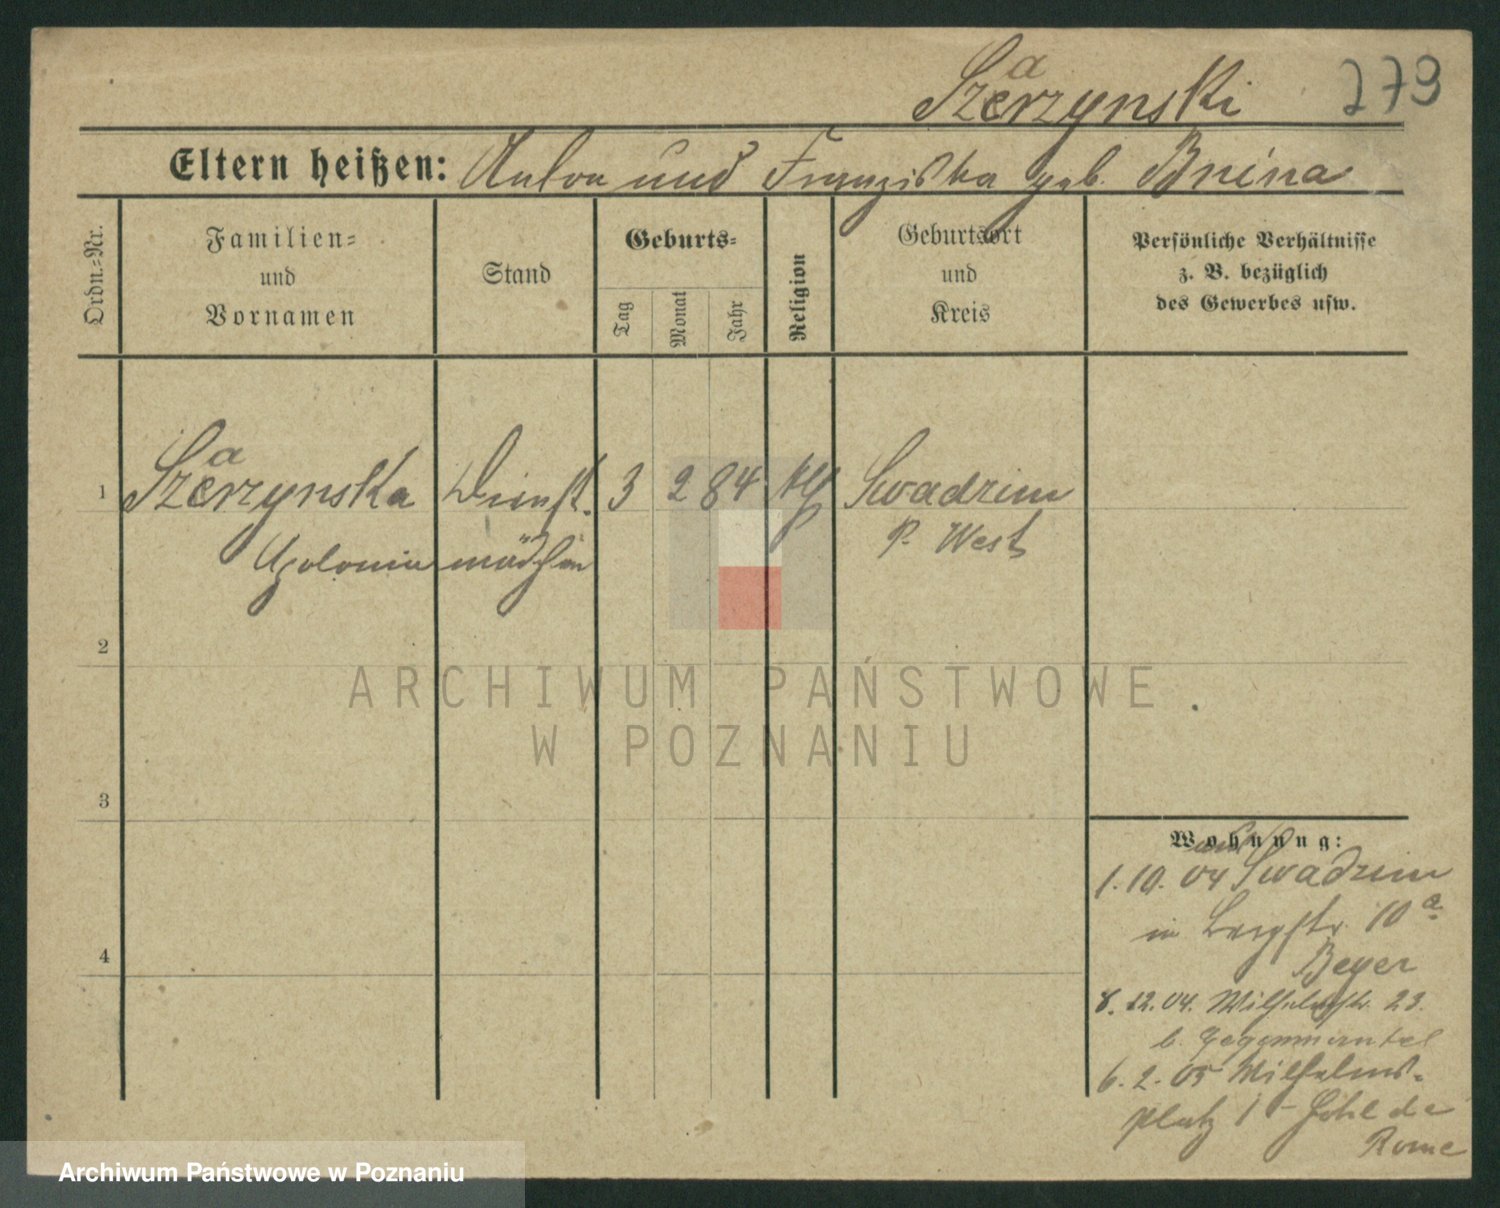 Szerzynski
a
279
Eltern heißen: Anton und Franziska geb. Bnina
Ordn.=Nr.
Familien=
und
Vornamen
Stand
Geburts=
Tag
Monat
Jahr
Religion
Geburtsort
und
Kreis
Persönliche Verhältnisse
z. B. bezüglich
des Gewerbes usw.
a
1 Szerzynska Dienst. 3 2 84 kth Swadzim
Apolonia mädchen P. West
2
3
4
Wohnung:
aus
1. 10. 04 Swadzim
in Bergstr. 10 a
Beyer
8. 12. 04. Wilhelmstr. 23.
b. Gegenmantel
6. 2. 05 Wilhelms-
platz 1 - Hôtel de
Rome
ARCHIWUM PAŃSTWOWE
W POZNANIU
Archiwum Państwowe w Poznaniu